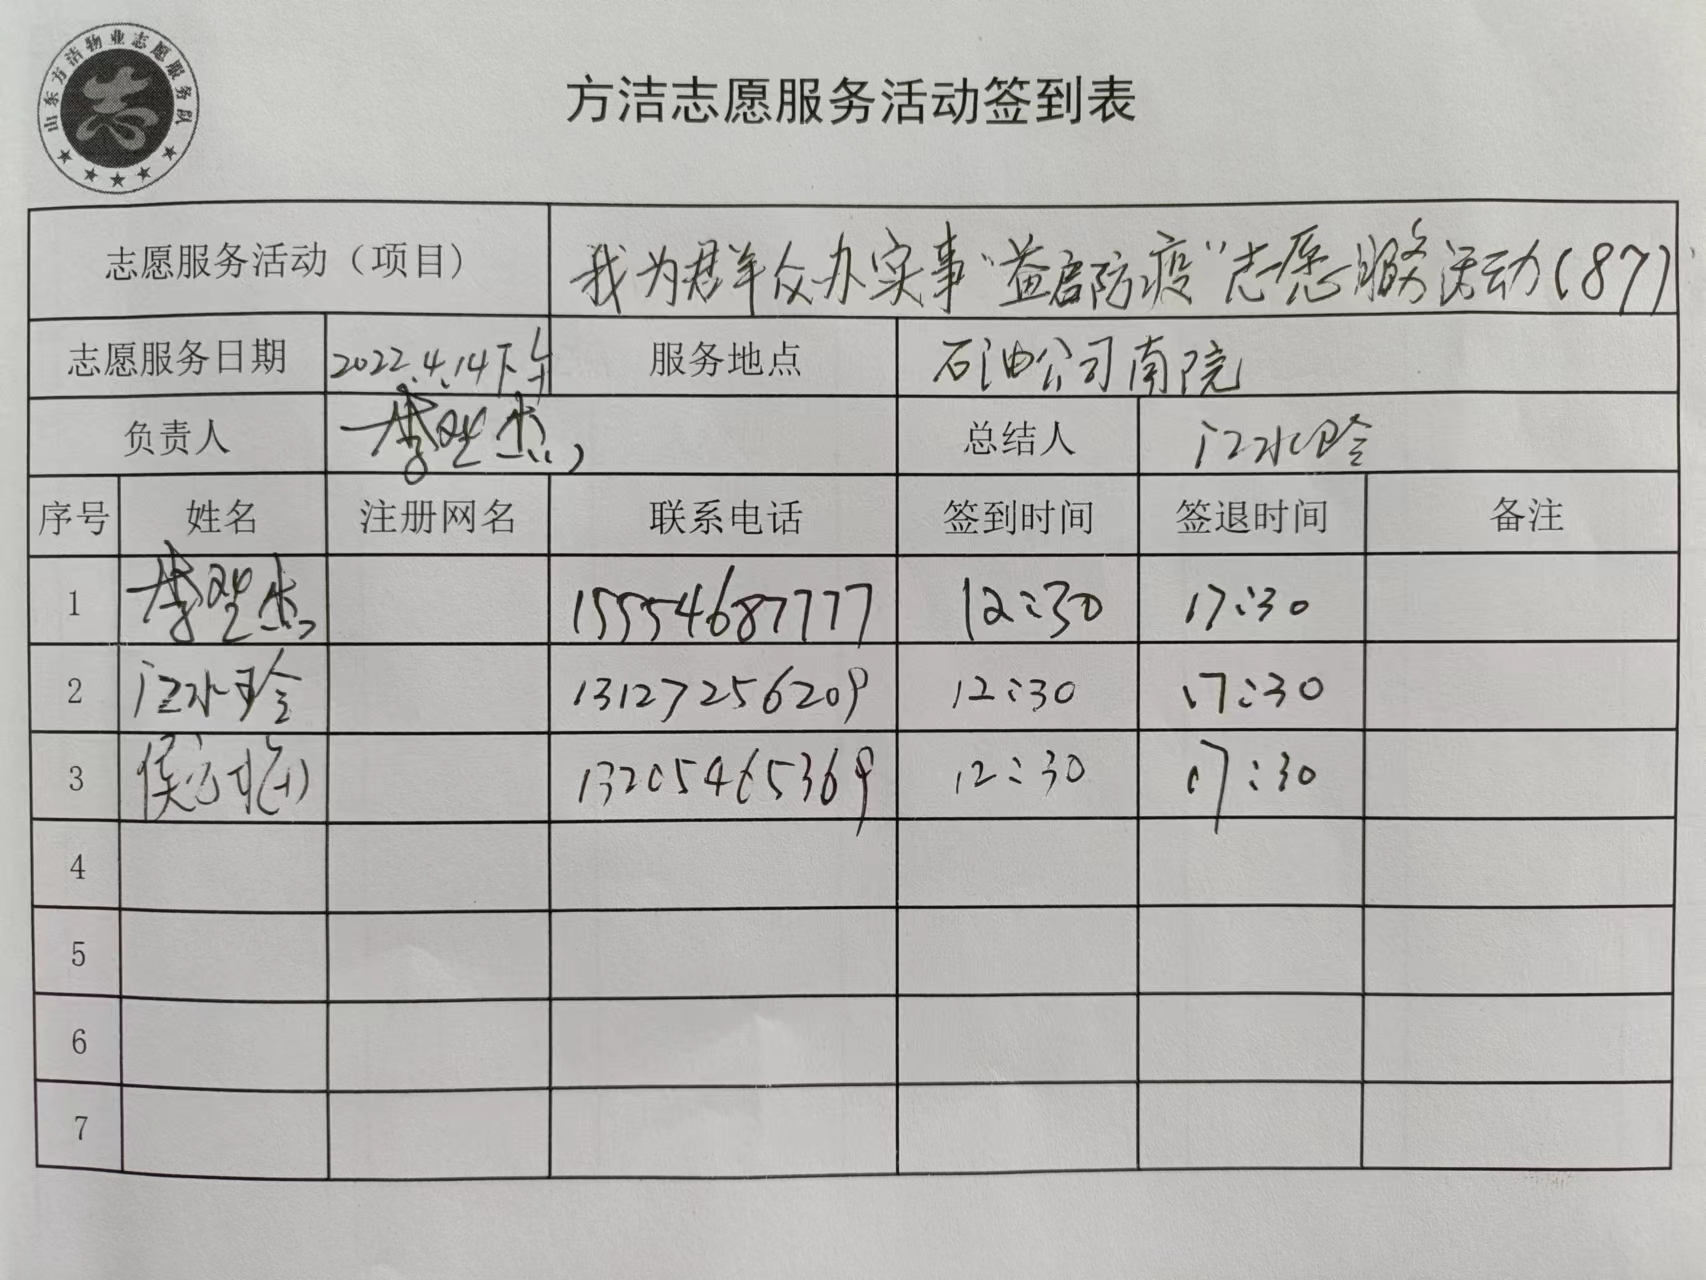 山东方洁物业志愿服务队
志
方洁志愿服务活动签到表
志愿服务活动（项目） 我为群众办实事“益启防疫”志愿服务活动(87)
志愿服务日期 2022.4.14下午 服务地点 石油公司南院
负责人 总结人 江水玲
序号 姓名 注册网名 联系电话 签到时间 签退时间 备注
1 15554687777 12:30 17:30
2 江水玲 13127256209 12:30 17:30
3 13205465369 12:30 17:30
4
5
6
7